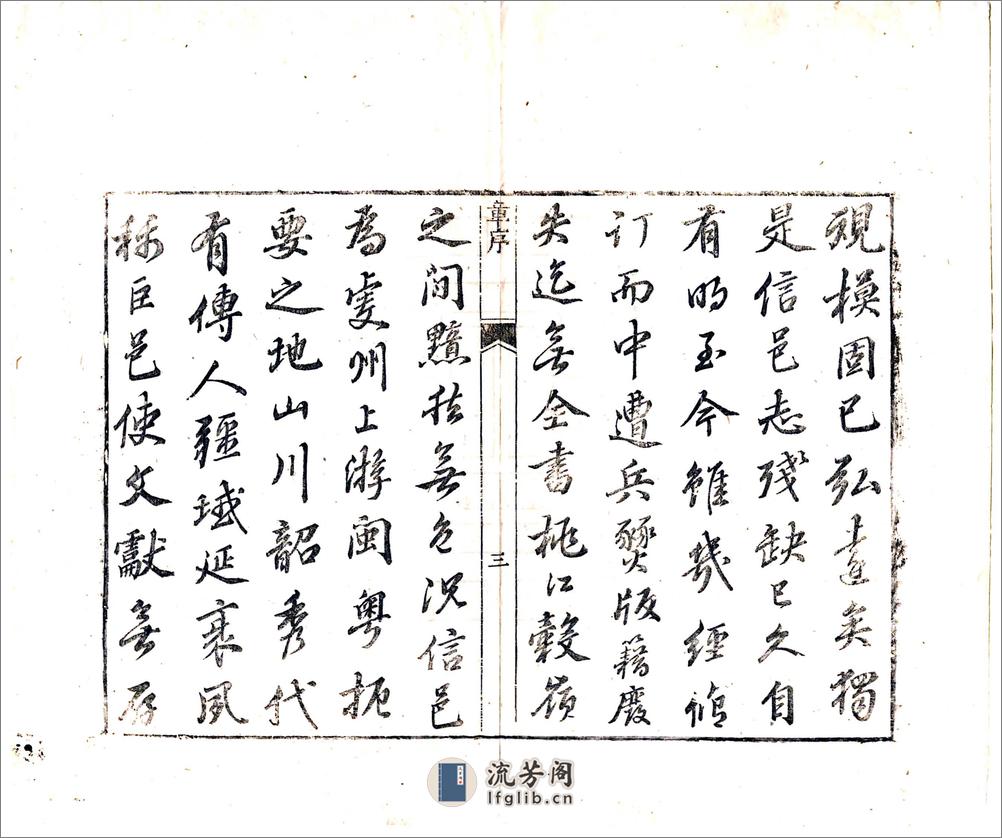 規模固已弘遠矣獨
是信邑志殘缺已久自
有明至今雖幾經脩
訂而中遭兵燹版籍廢
失迄無全書桃江穀嶺
章序
三
之間黯然無色況信邑
為虔州上游閩粵扼
要之地山川韶秀代
有傳人疆域延袤夙
稱巨邑使文獻無存
流芳阁
lfglib.cn